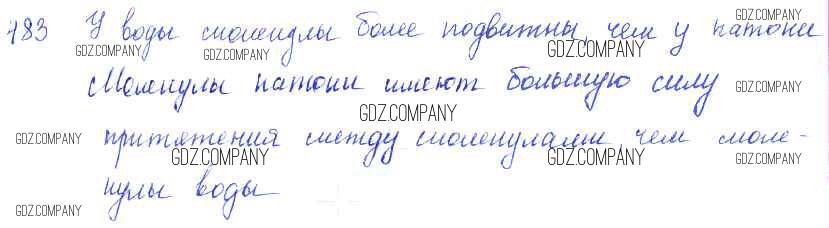 483 У воды молекулы более подвижны, чем у патоки
Молекулы патоки имеют большую силу
притяжения между молекулами, чем моле-
кулы воды
GDZ.COMPANY
GDZ.COMPANY
GDZ.COMPANY
GDZ.COMPANY
GDZ.COMPANY
GDZ.COMPANY
GDZ.COMPANY
GDZ.COMPANY
GDZ.COMPANY
GDZ.COMPANY
GDZ.COMPANY
GDZ.COMPANY